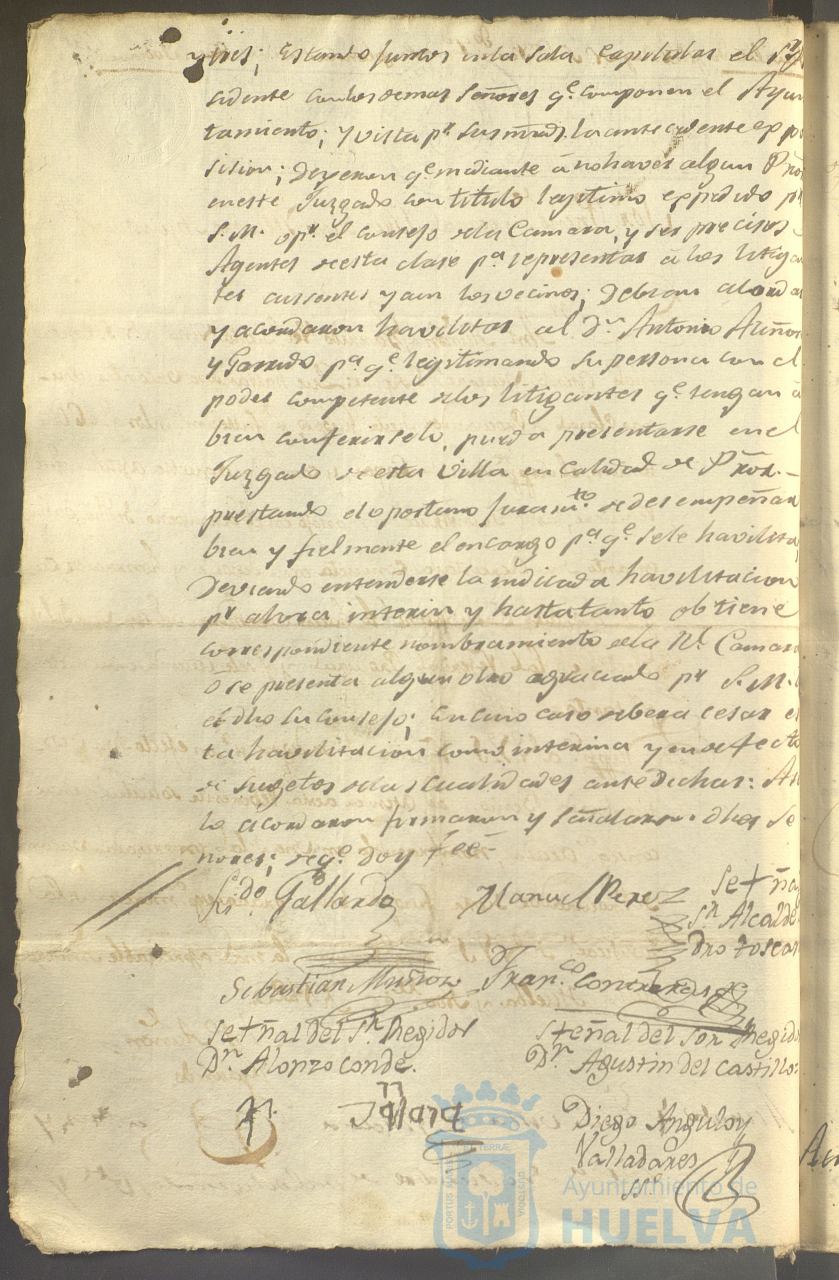 y tres; Estando juntos en la Sala Capitular el Sr
sidente con los demas Señores qe. componen el Ayun
tamiento; y vista pr. sus mrds. la antecedente expo
sision; dixeron qe. mediante á no haver algun Pror
en este Juzgado con titulo legitimo expedido pr
S.M. o pr. el consejo de la Camara, y ser precisos
Agentes de esta clase pa. representar a los litigan
tes ausentes y aun los vecinos; debian acordar
y acordaron havilitar al Dn. Antonio Ariñon
y Garrido pa. qe. legitimando su persona con el
poder competente de los litigantes qe. tengan á
bien conferirselo, pueda presentarse en el
Juzgado de esta Villa en calidad de Pror.
prestando el oportuno juramto. de desempeñar
bien y fielmente el encargo pa. qe. se le havilita,
Deviendo entenderse la indicada havilitacion
pr. ahora interin y hasta tanto obtiene
correspondiente nombramiento de la Rl. Camara
ó se presenta algun otro agraciado pr. S.M.
el dho su consejo; en cuio caso debera cesar es
ta havilitacion como interina y en defecto
de sugetos de las cualidades ante dichas: Asi
lo acordaron firmaron y señalaron dhos Se
ñores; de qe. doy fee-
Gallardo Manuel Perez Se+ñal
Sr. Alcalde
Dro toscan
Sebastian Muñoz Franco. Contreras
Se+ñal del Sr. Regidor S+eñal del Sor Regidor
Dn. Alonzo Conde. Dn. Agustin del Castillo
Diego Angulo y
Valladares
SSo.
PORTUS MARIS ET TERRÆ CUSTODIA
Ayuntamiento de
HUELVA